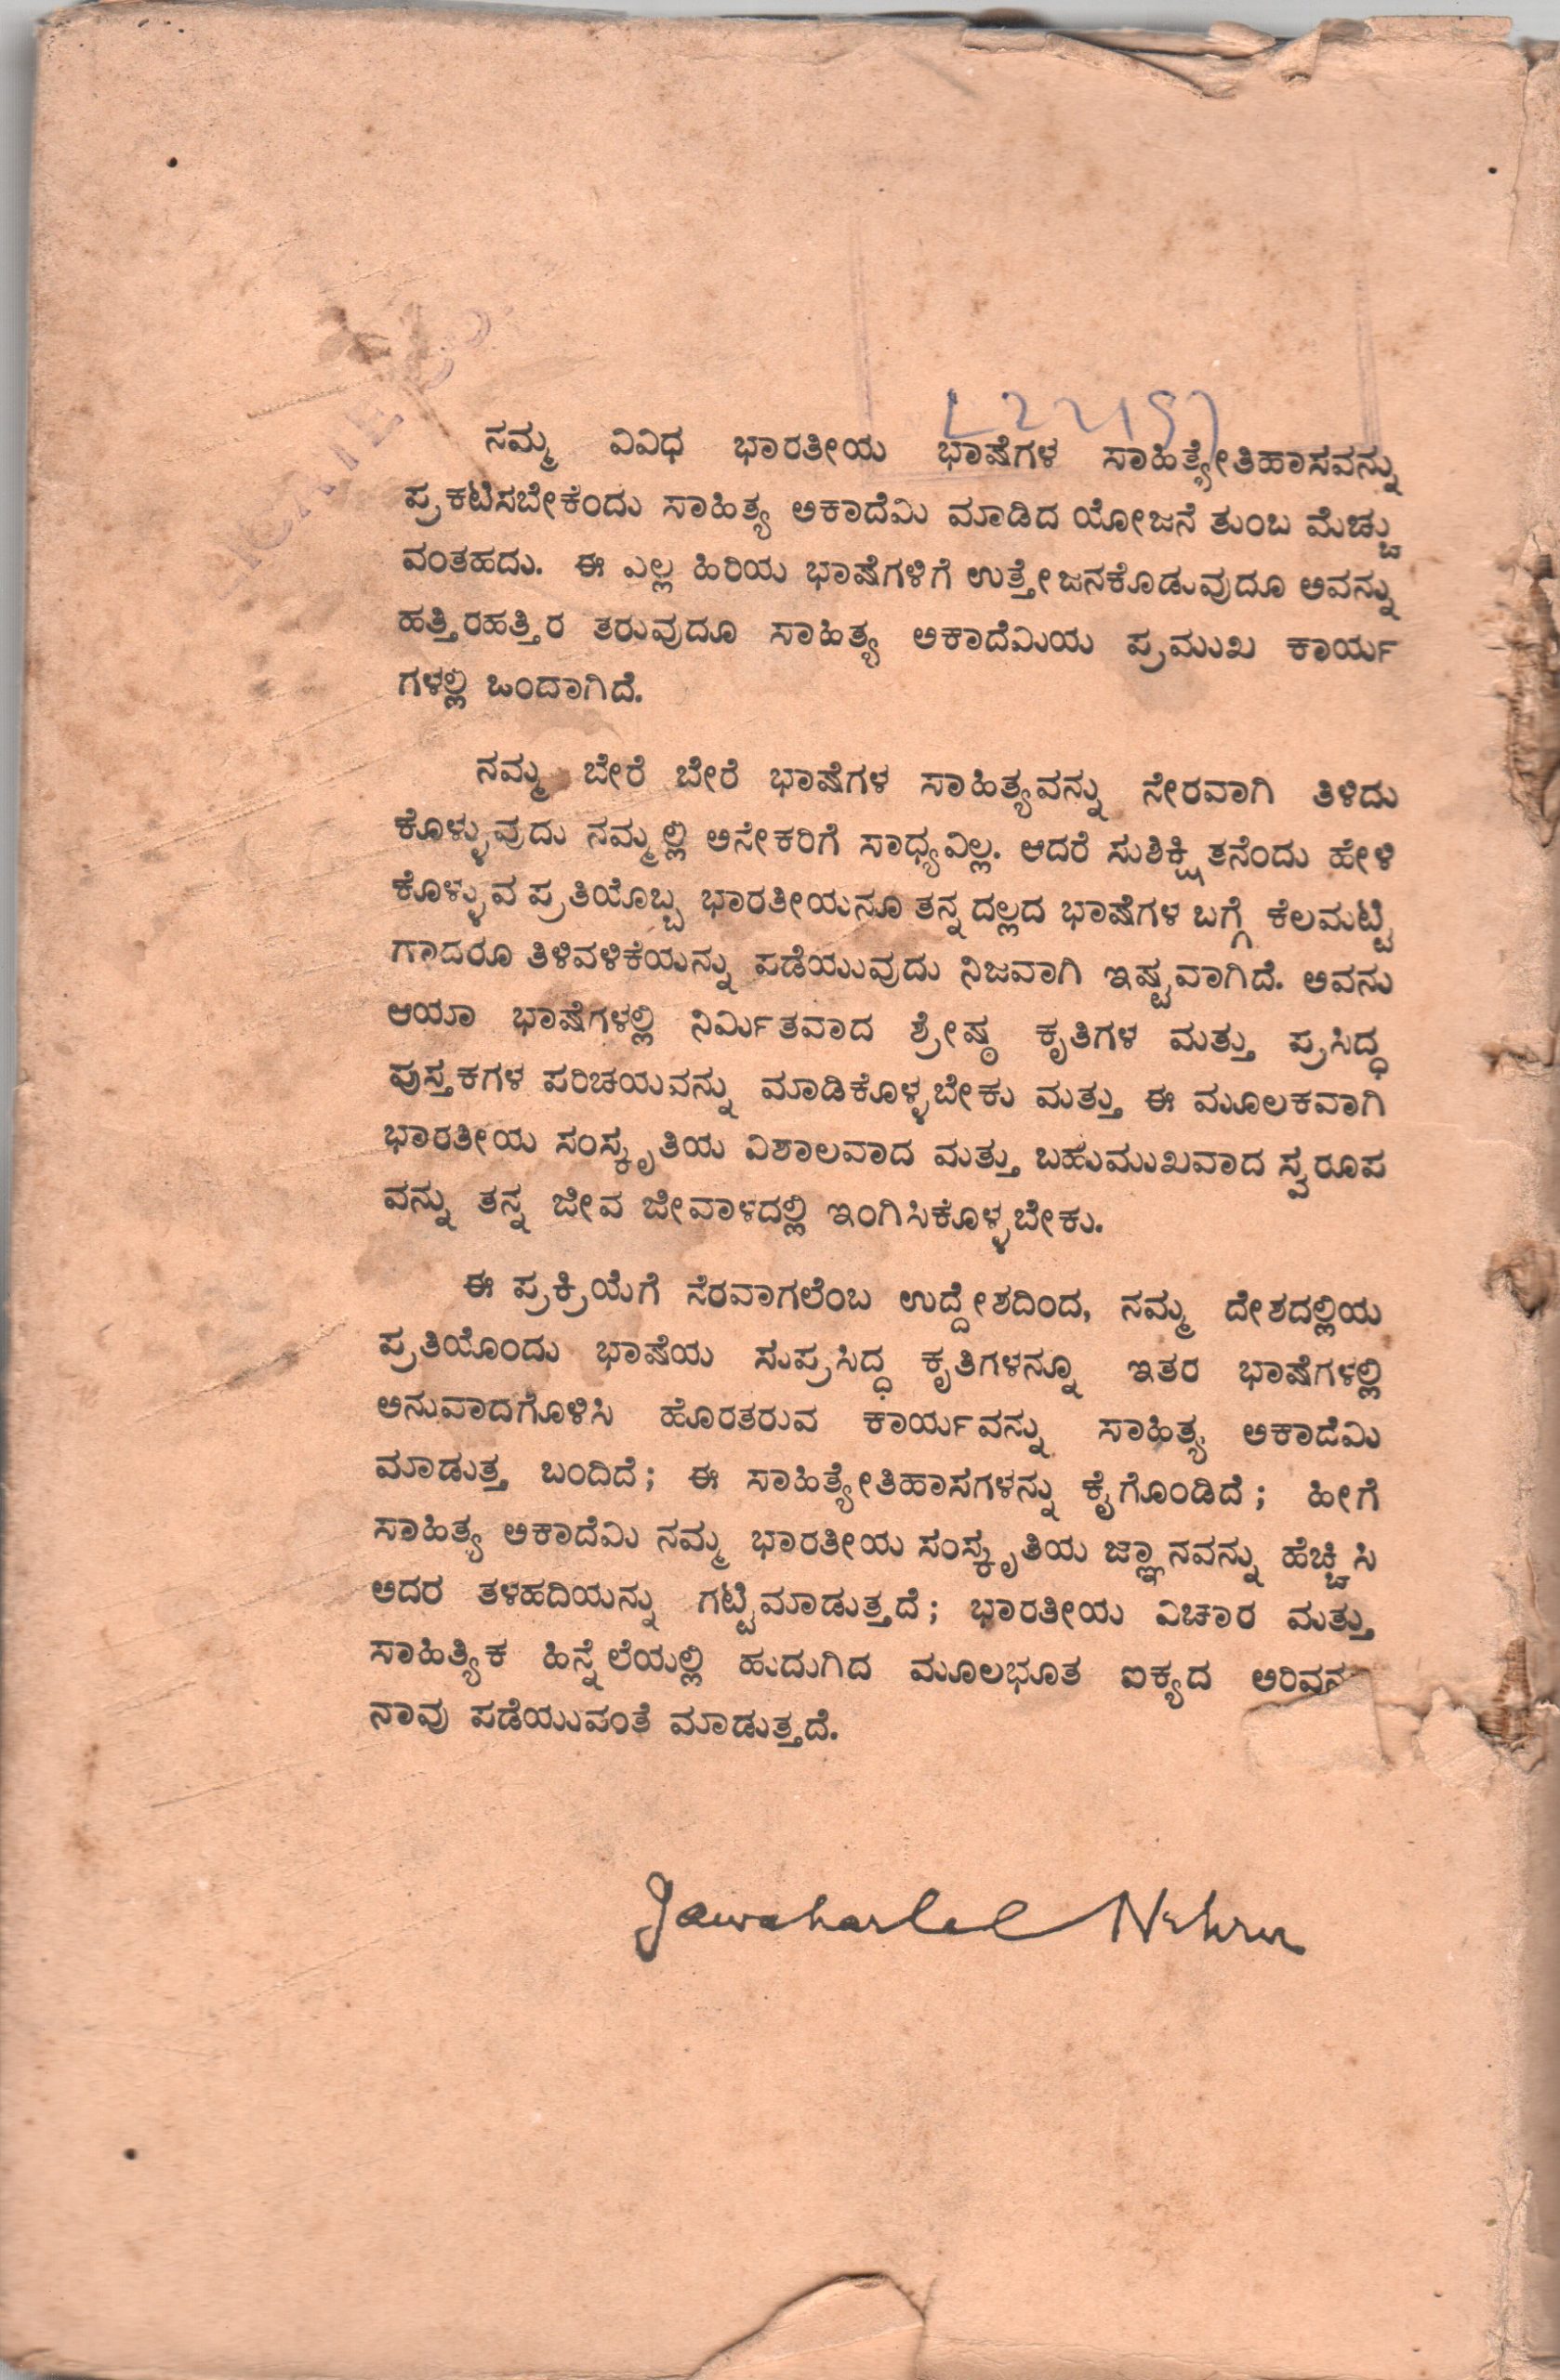 ನಮ್ಮ ವಿವಿಧ ಭಾರತೀಯ ಭಾಷೆಗಳ ಸಾಹಿತ್ಯೇತಿಹಾಸವನ್ನು
ಪ್ರಕಟಿಸಬೇಕೆಂದು ಸಾಹಿತ್ಯ ಅಕಾದೆಮಿ ಮಾಡಿದ ಯೋಜನೆ ತುಂಬ ಮೆಚ್ಚು
ವಂತಹದು. ಈ ಎಲ್ಲ ಹಿರಿಯ ಭಾಷೆಗಳಿಗೆ ಉತ್ತೇಜನಕೊಡುವುದೂ ಅವನ್ನು
ಹತ್ತಿರಹತ್ತಿರ ತರುವುದೂ ಸಾಹಿತ್ಯ ಅಕಾದೆಮಿಯ ಪ್ರಮುಖ ಕಾರ್ಯ
ಗಳಲ್ಲಿ ಒಂದಾಗಿದೆ.
ನಮ್ಮ ಬೇರೆ ಬೇರೆ ಭಾಷೆಗಳ ಸಾಹಿತ್ಯವನ್ನು ನೇರವಾಗಿ ತಿಳಿದು
ಕೊಳ್ಳುವುದು ನಮ್ಮಲ್ಲಿ ಅನೇಕರಿಗೆ ಸಾಧ್ಯವಿಲ್ಲ. ಆದರೆ ಸುಶಿಕ್ಷಿತನೆಂದು ಹೇಳಿ
ಕೊಳ್ಳುವ ಪ್ರತಿಯೊಬ್ಬ ಭಾರತೀಯನೂ ತನ್ನದಲ್ಲದ ಭಾಷೆಗಳ ಬಗ್ಗೆ ಕೆಲಮಟ್ಟಿ
ಗಾದರೂ ತಿಳಿವಳಿಕೆಯನ್ನು ಪಡೆಯುವುದು ನಿಜವಾಗಿ ಇಷ್ಟವಾಗಿದೆ. ಅವನು
ಆಯಾ ಭಾಷೆಗಳಲ್ಲಿ ನಿರ್ಮಿತವಾದ ಶ್ರೇಷ್ಠ ಕೃತಿಗಳ ಮತ್ತು ಪ್ರಸಿದ್ಧ
ಪುಸ್ತಕಗಳ ಪರಿಚಯವನ್ನು ಮಾಡಿಕೊಳ್ಳಬೇಕು ಮತ್ತು ಈ ಮೂಲಕವಾಗಿ
ಭಾರತೀಯ ಸಂಸ್ಕೃತಿಯ ವಿಶಾಲವಾದ ಮತ್ತು ಬಹುಮುಖವಾದ ಸ್ವರೂಪ
ವನ್ನು ತನ್ನ ಜೀವ ಜೀವಾಳದಲ್ಲಿ ಇಂಗಿಸಿಕೊಳ್ಳಬೇಕು.
ಈ ಪ್ರಕ್ರಿಯೆಗೆ ನೆರವಾಗಲೆಂಬ ಉದ್ದೇಶದಿಂದ, ನಮ್ಮ ದೇಶದಲ್ಲಿಯ
ಪ್ರತಿಯೊಂದು ಭಾಷೆಯ ಸುಪ್ರಸಿದ್ಧ ಕೃತಿಗಳನ್ನೂ ಇತರ ಭಾಷೆಗಳಲ್ಲಿ
ಅನುವಾದಗೊಳಿಸಿ ಹೊರತರುವ ಕಾರ್ಯವನ್ನು ಸಾಹಿತ್ಯ ಅಕಾದೆಮಿ
ಮಾಡುತ್ತ ಬಂದಿದೆ; ಈ ಸಾಹಿತ್ಯೇತಿಹಾಸಗಳನ್ನು ಕೈಗೊಂಡಿದೆ; ಹೀಗೆ
ಸಾಹಿತ್ಯ ಅಕಾದೆಮಿ ನಮ್ಮ ಭಾರತೀಯ ಸಂಸ್ಕೃತಿಯ ಜ್ಞಾನವನ್ನು ಹೆಚ್ಚಿಸಿ
ಅದರ ತಳಹದಿಯನ್ನು ಗಟ್ಟಿಮಾಡುತ್ತದೆ; ಭಾರತೀಯ ವಿಚಾರ ಮತ್ತು
ಸಾಹಿತ್ಯಿಕ ಹಿನ್ನೆಲೆಯಲ್ಲಿ ಹುದುಗಿದ ಮೂಲಭೂತ ಐಕ್ಯದ
ನಾವು ಪಡೆಯುವಂತೆ ಮಾಡುತ್ತದೆ.
Jawaharlal Nehru